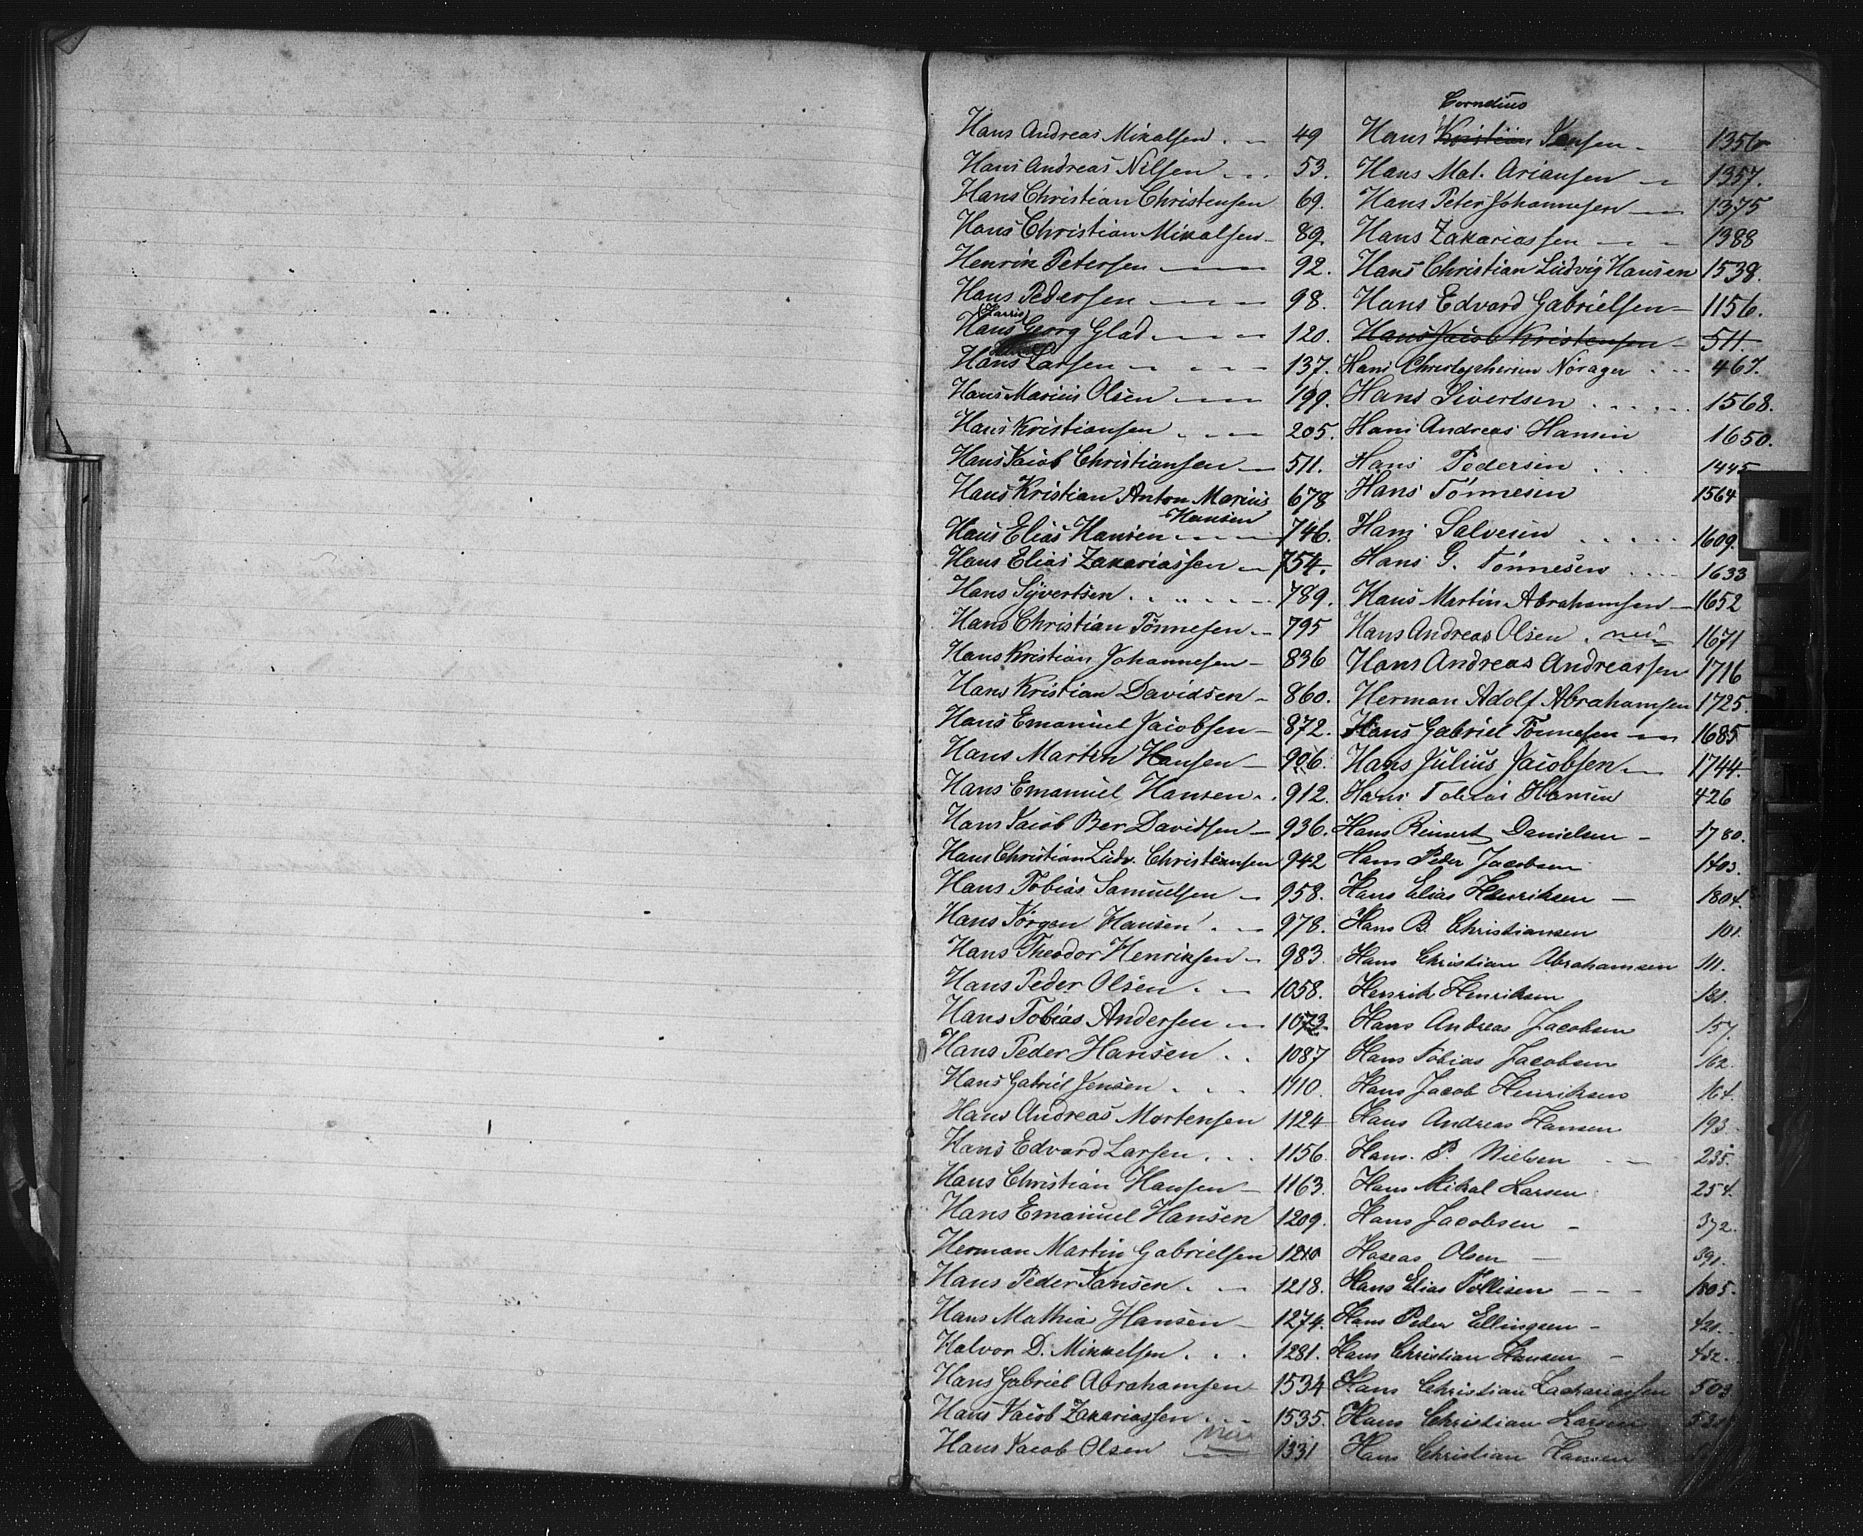 Hans Andreas Mikalsen . — 49
Hans Andreas Nilsen . . . 53.
Hans Christian Christensen 69.
Hans Christian Mikalsen — 89.
Henrik Petersen — — 92.
Hans Pedersen — — — 98.
(Harris)
Hans Georg Glad — — — 120.
Hans Larsen — — — — 137.
Hans Marius Olsen — — — 199.
Hans Kristiansen . — — 205.
Hans Jacob Christiansen — 511.
Hans Kristian Anton Marius 678
Hansen
Hans Elias Hansen — — — 746.
Hans Elias Zakariassen — 754.
Hans Syvertsen . . . — — 789.
Hans Christian Tönnesen — 795
Hans Kristian Johannesen — 836
Hans Kristian Davidsen — 860.
Hans Emanuel Jacobsen — 872.
Hans Martin Hansen — 906.
Hans Emanuel Hansen . . 912.
Hans Jacob Ber Davidsen — 936.
Hans Christian Ludv. Christiansen 942
Hans Tobias Samuelsen — 958.
Hans Jörgen Hansen . — 978.
Hans Theodor Henriksen — 983.
Hans Peder Olsen . — 1058.
Hans Tobias Andersen — 1073
Hans Peder Hansen . . 1087
Hans Gabriel Jensen . . 1110.
Hans Andreas Mortensen 1124
Hans Edvard Larsen . . . 1156.
Hans Christian Hansen — 1163.
Hans Emanuel Hansen 1209.
Herman Martin Gabrielsen 1210
Hans Peder Jansen . — 1218.
Hans Mathia Hansen — 1274.
Halvor D. Mikkelsen . . . 1281.
Hans Gabriel Abrahamsen 1534
Hans Jacob Zakariassen . . . 1535.
Hans Jacob Olsen — 1331
Cornelius
Hans Kristian Jensen — 1356
Hans Mat. Ariansen — 1357.
Hans Peter Johannesen — 1375
Hans Zakariassen — — — 1388
Hans Christian Ludvig Hansen 1538.
Hans Edvard Gabrielsen — 1156.
Hans Jacob Kristensen — 511
Hans Christopherson Nörager . . . 467.
Hans Sivertsen . . . . . 1568.
Hans Andreas Hansen 1650.
Hans Pedersen . . . 1445
Hans Tönnesen 1564
Hans Salvesen . . . . . 1609.
Hans G. Tönnesen . . . 1633
Hans Martin Abrahamsen — 1652
Hans Andreas Olsen . nei 1671
Hans Andreas Andreassen 1716
Herman Adolf Abrahamsen 1725.
Hans Gabriel Tönnesen — 1685
Hans Julius Jacobsen — 1744.
Hans Tobias Hansen 426
Hans Reinert Danielsen — 1780.
Hans Peder Jacobsen 1403.
Hans Elias Henriksen — 1804.
Hans B. Christiansen 101.
Hans Christian Abrahamsen 111.
Henrik Henriksen 131.
Hans Andreas Jacobsen 157.
Hans Tobias Jacobsen 162.
Hans Jacob Henriksen 164.
Hans Andreas Hansen 193
Hans. P. Nielsen — 235.
Hans Mikal Larsen 254.
Hans Jacobsen — 372.
Olsen — 391.
Hans Elias Tollisen — — — 1805.
Hans Peder Ellingsen — 421.
Hans Christian Hansen — 432.
Hans Christian Zachariassen 503
Hans Christian Larsen
Hans Christian Hansen